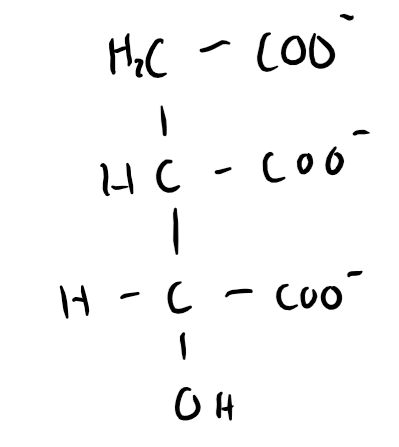 H₂C - COO⁻
|
HC - COO⁻
|
H - C - COO⁻
|
OH